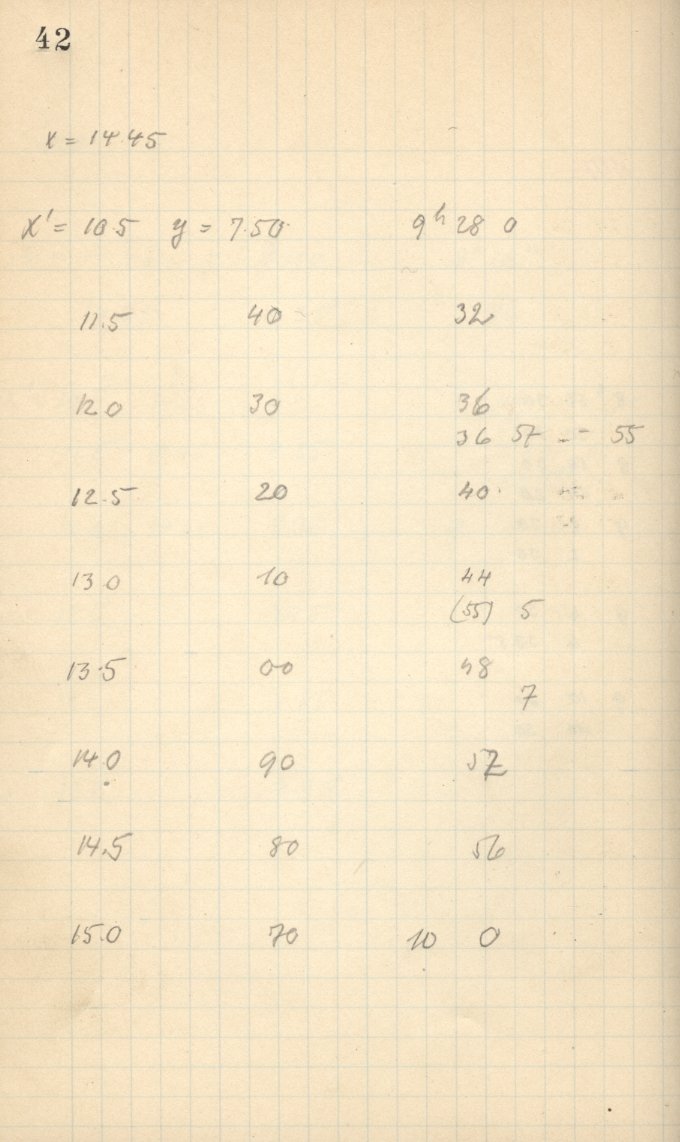 42
x = 14.45
x' = 10.5 y = 7.50 9h 28 0
11.5 40 32
12.0 30 36
36 57 -- 55
12.5 20 40
13.0 10 44
(55) 5
13.5 00 48
7
14.0 90 52
14.5 80 56
15.0 70 10 0